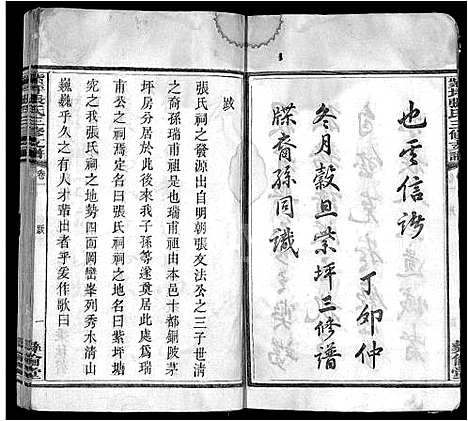 也云信誇
丁卯仲
冬月穀旦崇坪三修譜
牒裔孫同識
彝倫堂
跋
張氏祠之發源出自明朝張友法公之三子世清
之裔孫瑞甫祖是也瑞甫祖由本邑十都銅陂茅
坪房居於此後來我子孫等遂奠居此處為瑞
甫公之祠焉定名曰張氏祠祠之地名曰紫坪塘
究之我張氏祠之地勢四面岡巒峯列秀水清山
巍巍乎久之有人才輩出者乎爰作歌曰
張氏三修支譜
卷一
跋
一
彝倫堂